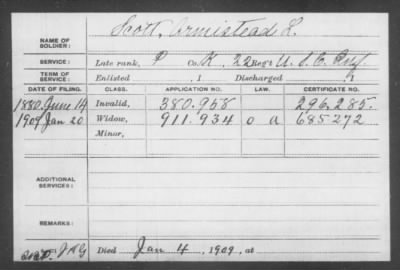 NAME OF SOLDIER: Scott, Armistead L.
SERVICE: Late rank, P Co. K, 22 Reg't U. S. C. Inf.
TERM OF SERVICE: Enlisted , 1 Discharged , 1
DATE OF FILING. CLASS. APPLICATION NO. LAW. CERTIFICATE NO.
1880 June 14 Invalid, 380.958 296.285.
1909 Jan 20 Widow, 911.934 o a 685272
Minor,
ADDITIONAL SERVICES:
REMARKS:
Died Jan 4, 1909, at